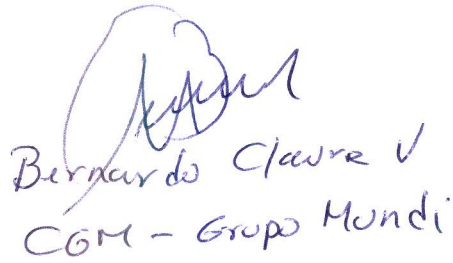 Bernardo Claure V
CGM - Grupo Mundi